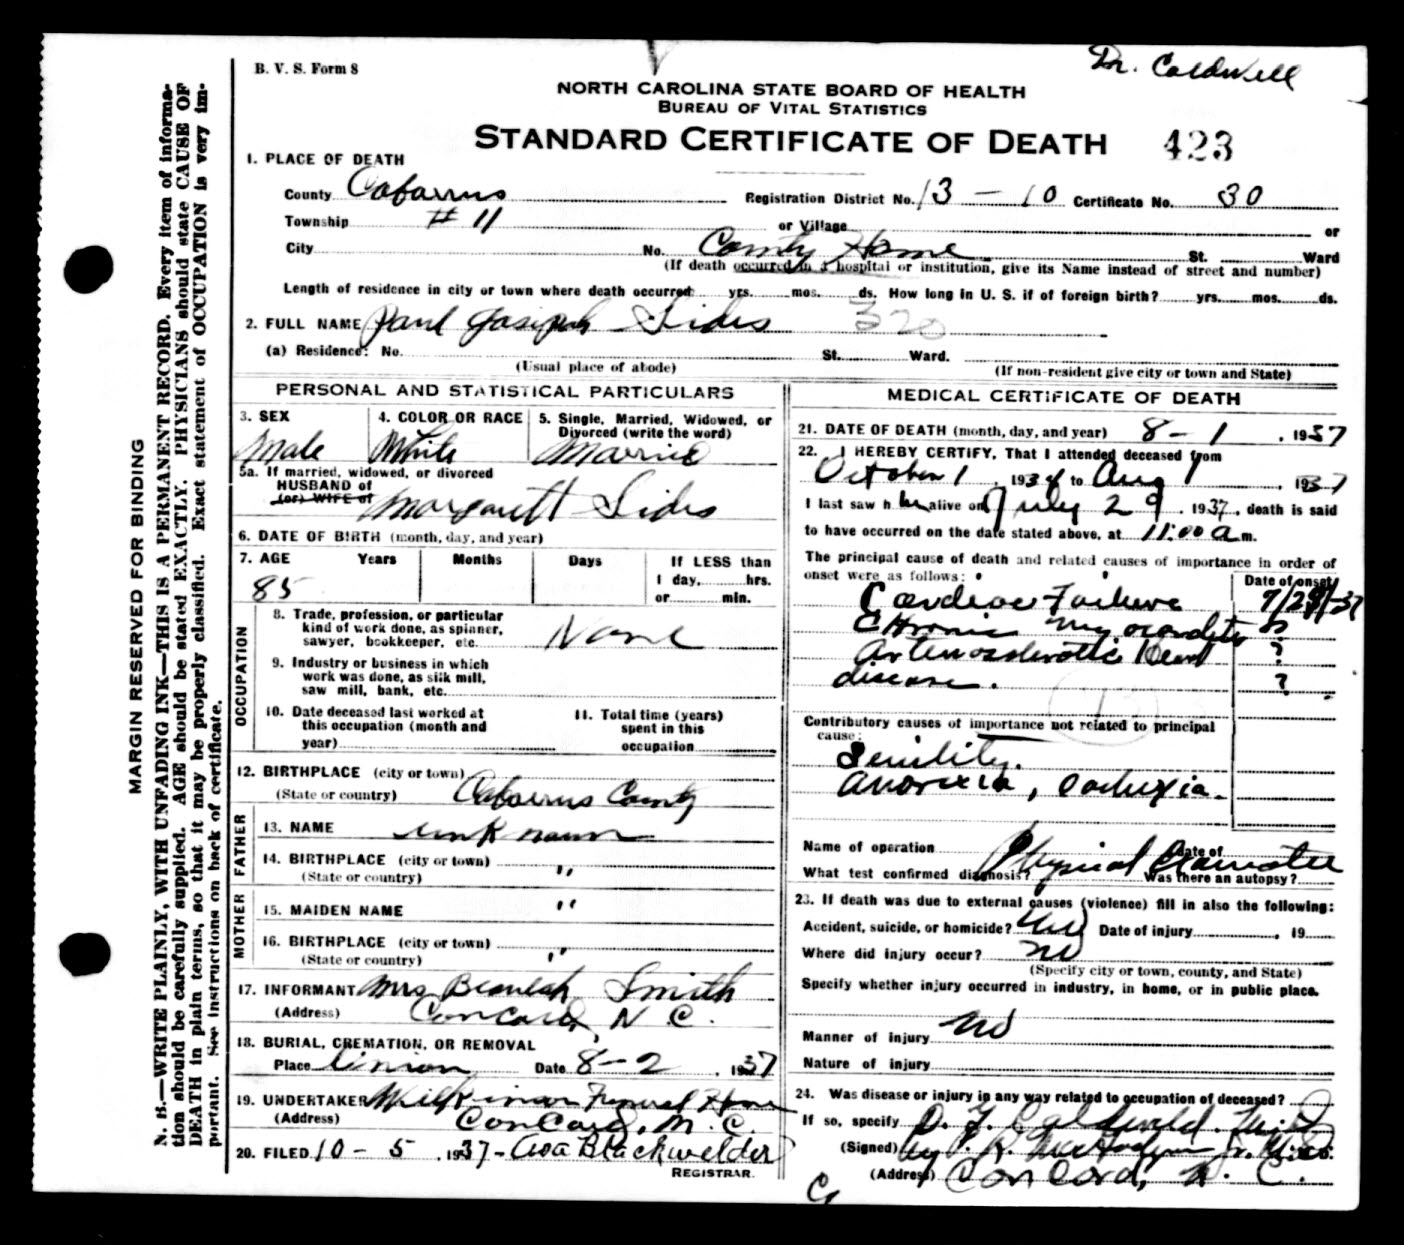 Dr. Caldwell
B. V. S. Form 8
NORTH CAROLINA STATE BOARD OF HEALTH
BUREAU OF VITAL STATISTICS
STANDARD CERTIFICATE OF DEATH 423
1. PLACE OF DEATH
County Cabarrus Registration District No. 13-10 Certificate No. 30
Township #11 or Village or
City No. County Home St. Ward
(If death occurred in a hospital or institution, give its Name instead of street and number)
Length of residence in city or town where death occurred yrs. mos. ds. How long in U. S. if of foreign birth? yrs. mos. ds.
2. FULL NAME Paul Josiph Sides 320
(a) Residence: No. St. Ward.
(Usual place of abode) (If non-resident give city or town and State)
PERSONAL AND STATISTICAL PARTICULARS
3. SEX 4. COLOR OR RACE 5. Single, Married, Widowed, or
Divorced (write the word)
Male White Married
5a. If married, widowed, or divorced
HUSBAND of
(or) WIFE of Margarett Sides
6. DATE OF BIRTH (month, day, and year)
7. AGE Years Months Days If LESS than
1 day, hrs.
or min.
85
OCCUPATION
8. Trade, profession, or particular
kind of work done, as spinner,
sawyer, bookkeeper, etc. None
9. Industry or business in which
work was done, as silk mill,
saw mill, bank, etc.
10. Date deceased last worked at
this occupation (month and
year)
11. Total time (years)
spent in this
occupation
12. BIRTHPLACE (city or town)
(State or country) Cabarrus County
FATHER
13. NAME unknown
14. BIRTHPLACE (city or town)
(State or country) "
MOTHER
15. MAIDEN NAME "
16. BIRTHPLACE (city or town)
(State or country) "
17. INFORMANT Mrs Beulah Smith
(Address) Concord, N. C.
18. BURIAL, CREMATION, OR REMOVAL
Place Union Date 8-2, 1937
19. UNDERTAKER Wilkinson Funeral Home
(Address) Concord, N. C.
20. FILED 10-5, 1937- Ava Blackwelder
REGISTRAR.
MEDICAL CERTIFICATE OF DEATH
21. DATE OF DEATH (month, day, and year) 8-1, 1937
22. I HEREBY CERTIFY, That I attended deceased from
October 1, 1934 to Aug 1, 1937
I last saw him alive on July 29, 1937, death is said
to have occurred on the date stated above, at 11:00 a m.
The principal cause of death and related causes of importance in order of
onset were as follows: Date of onset
Cardiac Failure 7/29/37
Chronic Myocarditis ?
Arteriosclerotic Heart ?
disease. ?
Contributory causes of importance not related to principal
cause:
Senility.
Anorexia, Cachexia.
Name of operation Date of
What test confirmed diagnosis? Physical Was there an autopsy?
23. If death was due to external causes (violence) fill in also the following:
Accident, suicide, or homicide? No Date of injury , 19
Where did injury occur? No
(Specify city or town, county, and State)
Specify whether injury occurred in industry, in home, or in public place.
Manner of injury No
Nature of injury
24. Was disease or injury in any way related to occupation of deceased?
If so, specify D. G. Caldwell, M.D.
(Signed) by Jr. M.D.
(Address) Concord, N. C.
MARGIN RESERVED FOR BINDING
N. B.—WRITE PLAINLY, WITH UNFADING INK—THIS IS A PERMANENT RECORD. Every item of informa-
tion should be carefully supplied. AGE should be stated EXACTLY. PHYSICIANS should state CAUSE OF
DEATH in plain terms, so that it may be properly classified. Exact statement of OCCUPATION is very im-
portant. See instructions on back of certificate.